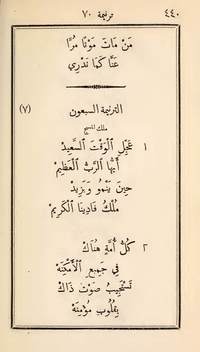 ٤٤٠ ترنيمة ٧٠
مَنْ مَاتَ مَوْتًا مُرًّا
عَنَّا كَمَا نَدْرِي
الترنيمة السبعون (٧)
ملك المسيح
١ عَجِّلِ ٱلْوَقْتَ ٱلسَّعِيدْ
أَيُّهَا ٱلرَّبُّ ٱلْعَظِيمْ
حِينَ يَنْمُو وَيَزِيدْ
مُلْكُ فَادِينَا ٱلْكَرِيمْ
٢ كُلُّ أُمَّةٍ هُنَاكْ
فِي جَمِيعِ ٱلْأَمْكِنَهْ
تَسْتَجِيبُ صَوْتَ ذَاكْ
بِقُلُوبٍ مُؤْمِنَهْ